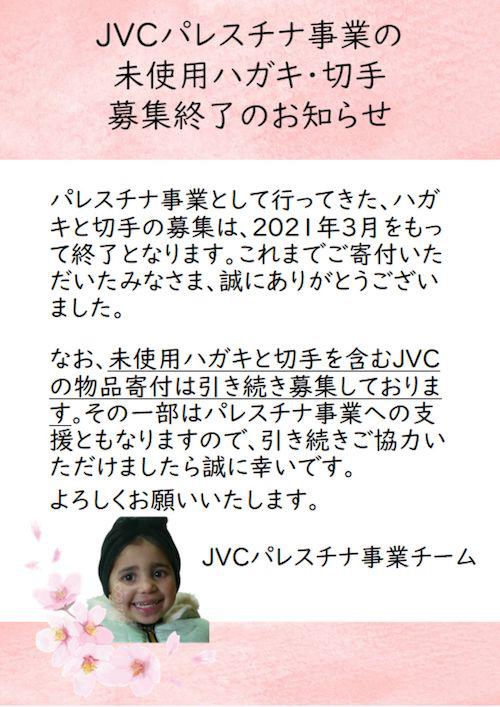 JVCパレスチナ事業の
未使用ハガキ・切手
募集終了のお知らせ
パレスチナ事業として行ってきた、ハガ
キと切手の募集は、2021年3月をもっ
て終了となります。これまでご寄付いた
だいたみなさま、誠にありがとうござい
ました。
なお、未使用ハガキと切手を含むJVC
の物品寄付は引き続き募集しておりま
す。その一部はパレスチナ事業への支
援ともなりますので、引き続きご協力い
ただけましたら誠に幸いです。
よろしくお願いいたします。
JVCパレスチナ事業チーム